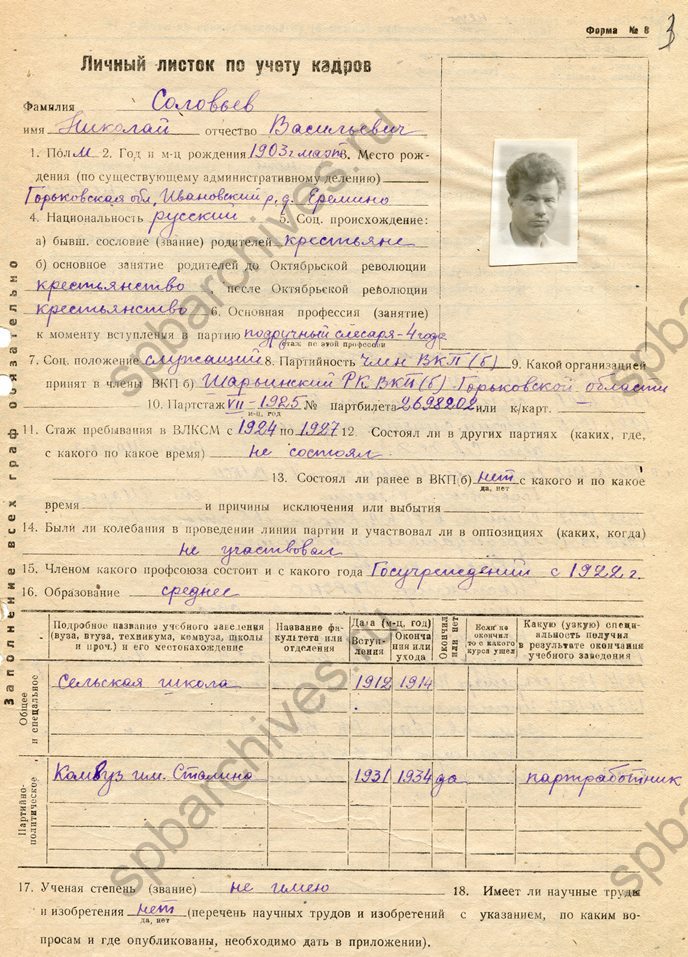 Форма № 8
3
Личный листок по учету кадров
Фамилия Соловьев
имя Николай отчество Васильевич
1. Пол М 2. Год и м-ц рождения 1903 г март 3. Место рож-
дения (по существующему административному делению)
Горьковская обл, Ивановский р, д. Еремино
4. Национальность русский 5. Соц. происхождение:
а) бывш. сословие (звание) родителей крестьяне
б) основное занятие родителей до Октябрьской революции
крестьянство после Октябрьской революции
крестьянство 6. Основная профессия (занятие)
к моменту вступления в партию подручный слесаря - 4 года
стаж по этой профессии
7. Соц. положение служащий 8. Партийность член ВКП(б) 9. Какой организацией
принят в члены ВКП б) Шарьинский РК ВКП(б) Горьковской области
10. Партстаж VII - 1925 № партбилета 2698202 или к/карт.
м-ц, год
11. Стаж пребывания в ВЛКСМ с 1924 по 1927 12 Состоял ли в других партиях (каких, где,
с какого по какое время) не состоял
13. Состоял ли ранее в ВКП б) нет с какого и по какое
да, нет
время и причины исключения или выбытия
14. Были ли колебания в проведении линии партии и участвовал ли в оппозициях (каких, когда)
не участвовал
15. Членом какого профсоюза состоит и с какого года Госучреждений с 1922 г.
16. Образование среднее
Подробное название учебного заведения (вуза, втуза, техникума, комвуза, школы и проч.) и его местонахождение
Название факультета или отделения
Дата (м-ц, год)
Вступления
Окончания или ухода
Окончил или нет
Если не окончил то с какого курса ушел
Какую (узкую) специальность получил в результате окончания учебного заведения
Общее и специальное
Сельская школа 1912 1914
Партийно-политическое
Комвуз им. Сталина 1931 1934 да партработник
17. Ученая степень (звание) не имею 18. Имеет ли научные труды
и изобретения нет (перечень научных трудов и изобретений с указанием, по каким во-
да, нет
просам и где опубликованы, необходимо дать в приложении).
Заполнение всех граф обязательно
spbarchives.ru
spbarchives.ru